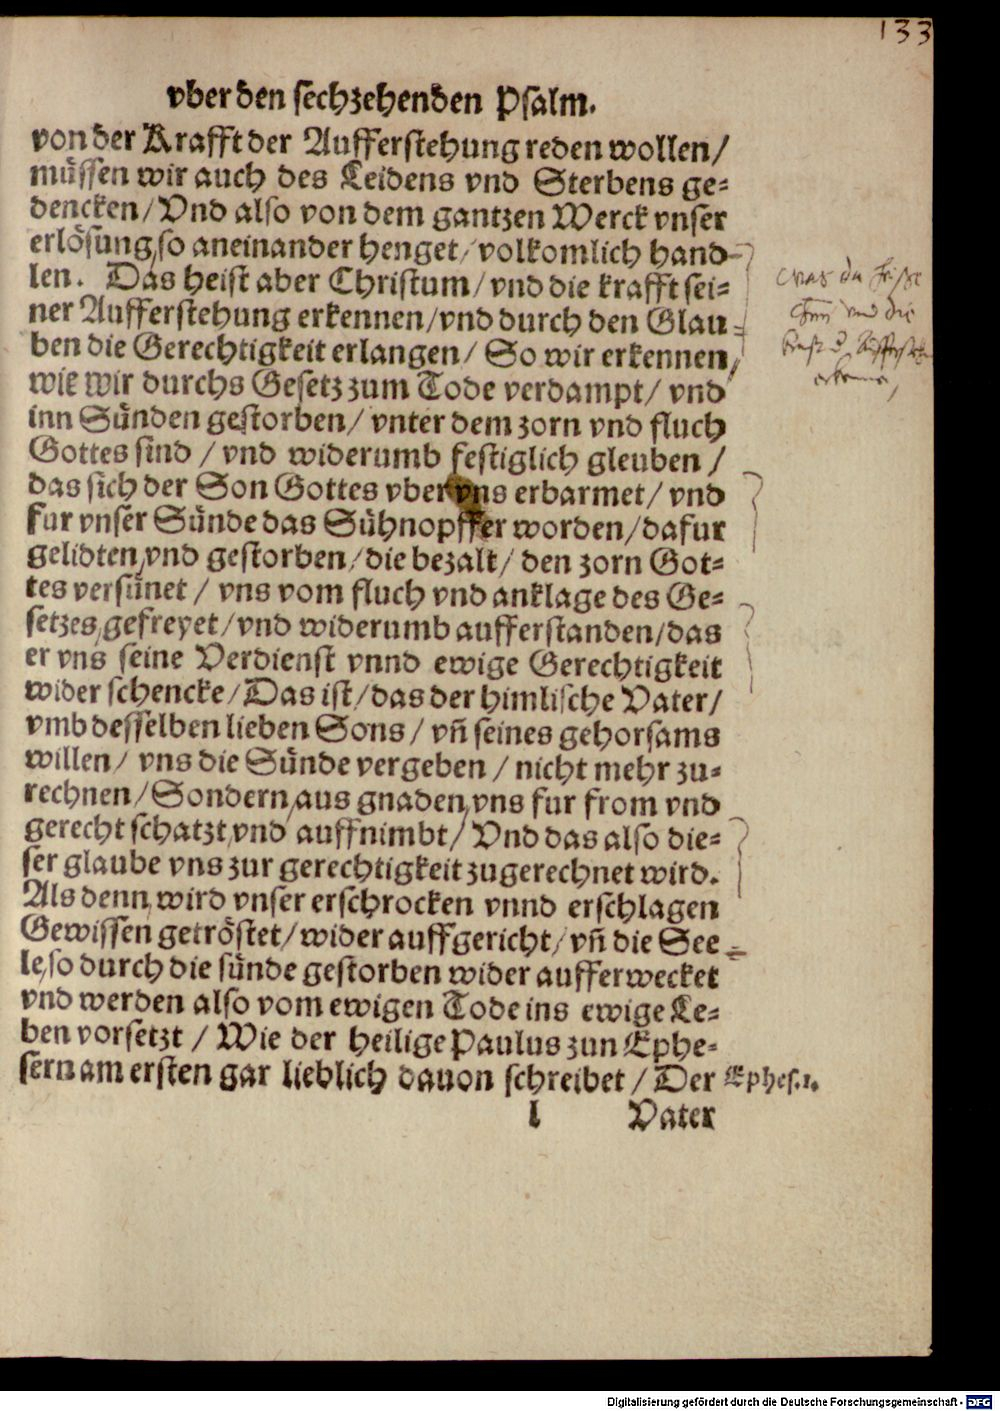 133
vber den sechzehenden Psalm.
von der Krafft der Aufferstehung reden wollen/
müssen wir auch des Leidens vnd Sterbens ge-
dencken/ Vnd also von dem gantzen Werck vnser
erlösung, so aneinander henget/ volkomlich hand-
len. Das heist aber Christum/ vnd die krafft sei-
ner Aufferstehung erkennen/ vnd durch den Glau-
ben die Gerechtigkeit erlangen/ So wir erkennen,
wie wir durchs Gesetz zum Tode verdampt/ vnd
inn Sünden gestorben/ vnter dem zorn vnd fluch
Gottes sind / vnd widerumb festiglich gleuben /
das sich der Son Gottes vber vns erbarmet/ vnd
fur vnser Sünde das Sühnopffer worden/ dafur
gelidten, vnd gestorben/ die bezalt/ den zorn Got-
tes versünet / vns vom fluch vnd anklage des Ge-
setzes, gefreyet/ vnd widerumb aufferstanden/ das
er vns seine Verdienst vnnd ewige Gerechtigkeit
wider schencke/ Das ist/ das der himlische Vater/
vmb desselben lieben Sons / vñ seines gehorsams
willen/ vns die Sünde vergeben / nicht mehr zu-
rechnen/ Sondern, aus gnaden, vns fur from vnd
gerecht schatzt, vnd auffnimbt/ Vnd das also die-
ser glaube vns zur gerechtigkeit zugerechnet wird.
Als denn, wird vnser erschrocken vnnd erschlagen
Gewissen getröstet/ wider auffgericht/ vñ die See-
le, so durch die sünde gestorben wider aufferwecket
vnd werden also vom ewigen Tode ins ewige Le-
ben vorsetzt / Wie der heilige Paulus zun Ephe-
sern am ersten gar lieblich dauon schreibet / Der
Ephes.1.
l Vater
was da
vnd die
Digitalisierung gefördert durch die Deutsche Forschungsgemeinschaft - DFG